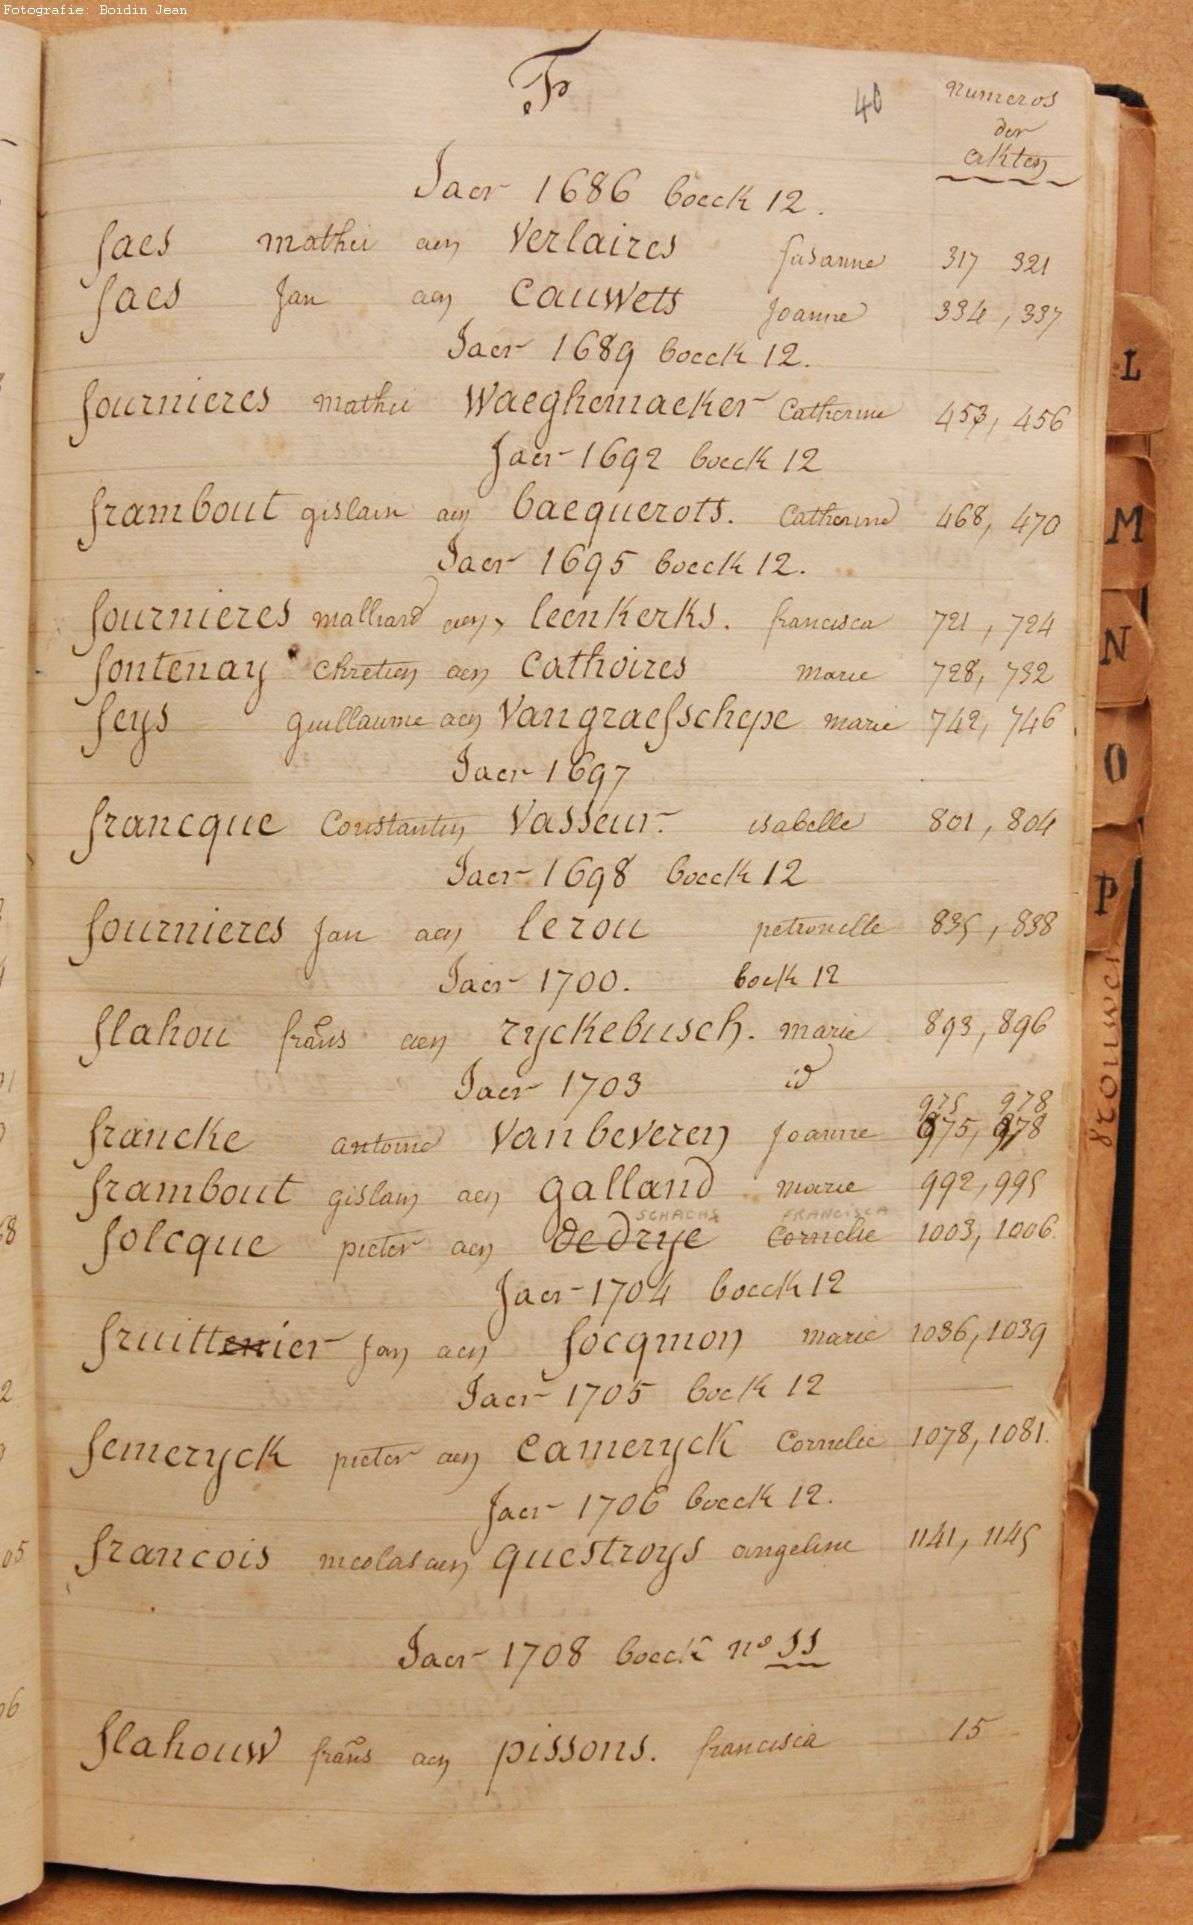 Fotografie: Boidin Jean
F
40
Numeros
der
akten
Jaer 1686 boeck 12.
faes mathei aen Verlaires susanne 317 321
faes Jan aen Cauwets Joanne 334, 337
Jaer 1689 boeck 12.
fournieres mathei Waeghemaeker Catherine 453, 456
Jaer 1692 boeck 12
frambout gislain aen bacquerots. Catherine 468, 470
Jaer 1695 boeck 12.
fournieres malliard aen, leenkerks. francisca 721, 724
fontenay chretien aen Cathoires marie 728, 732
feys guillaume aen Vangraefschepe marie 742, 746
Jaer 1697
francque Constantin Vasseur. isabelle 801, 804
Jaer 1698 boeck 12
fournieres Jan aen lerou petronelle 835, 838
Jaer 1700. boek 12
flahou frans aen ryckebusch. marie 893, 896
Jaer 1703 id
975 978
francke antoine Vanbeveren Joanne 975, 978
frambout gislain aen galland marie 992, 995
SCHACHS FRANCISCA
folcque pieter aen dedrye Cornelie 1003, 1006
Jaer 1704 boeck 12
fruittenier Jan aen focqmon marie 1036, 1039
Jaer 1705 boek 12
femeryck pieter aen Cameryck Cornelie 1078, 1081.
Jaer 1706 boeck 12.
francois nicolas aen questroys angeline 1141, 1145
Jaer 1708 boeck no 11
flahouw frans aen pissons. francisca 15
L
M
N
O
P